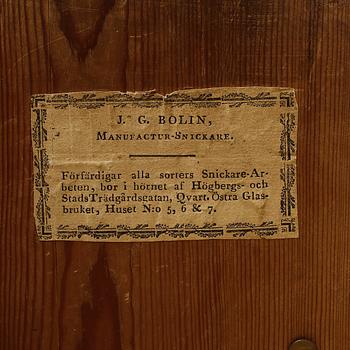 J. G. BOLIN,
MANUFACTUR-SNICKARE.
Förfärdigar alla sorters Snickare-Ar-
beten, bor i hörnet af Högbergs- och
StadsTrädgårdsgatan, Qvart. Östra Glas-
bruket, Huset N:o 5, 6 & 7.